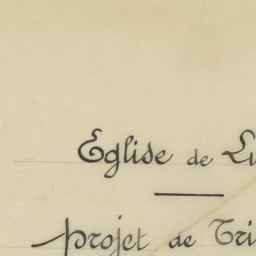 Eglise de Lu
projet de Tri